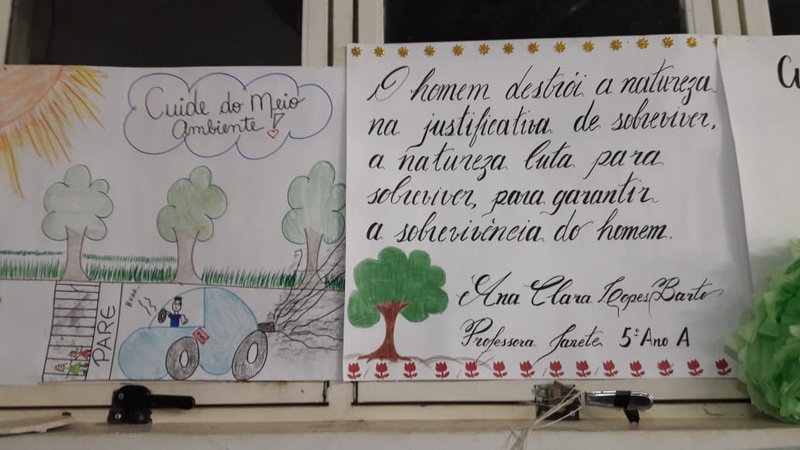 Cuide do Meio
Ambiente!
PARE
O homem destrói a natureza
na justificativa de sobreviver,
a natureza luta para
sobreviver, para garantir
a sobrevivência do homem.
Ana Clara Lopes Barto
Professora Janete 5º Ano A